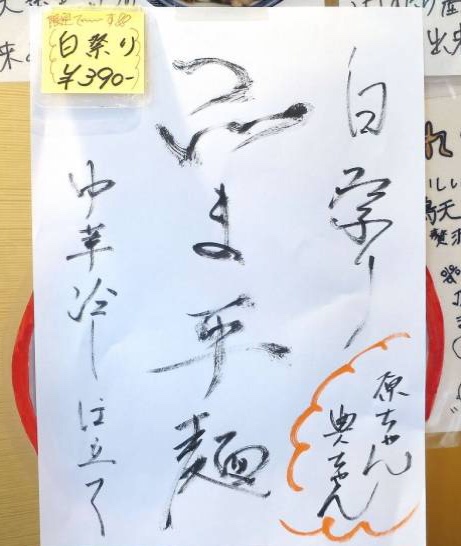 限定で〜す!!
白祭り
¥390-
白祭り
原ちゃん
典ちゃん
ごま平麺
中華冷し仕立て